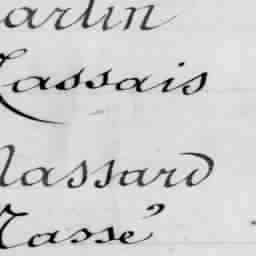 artin
Massais
Massard
Massé